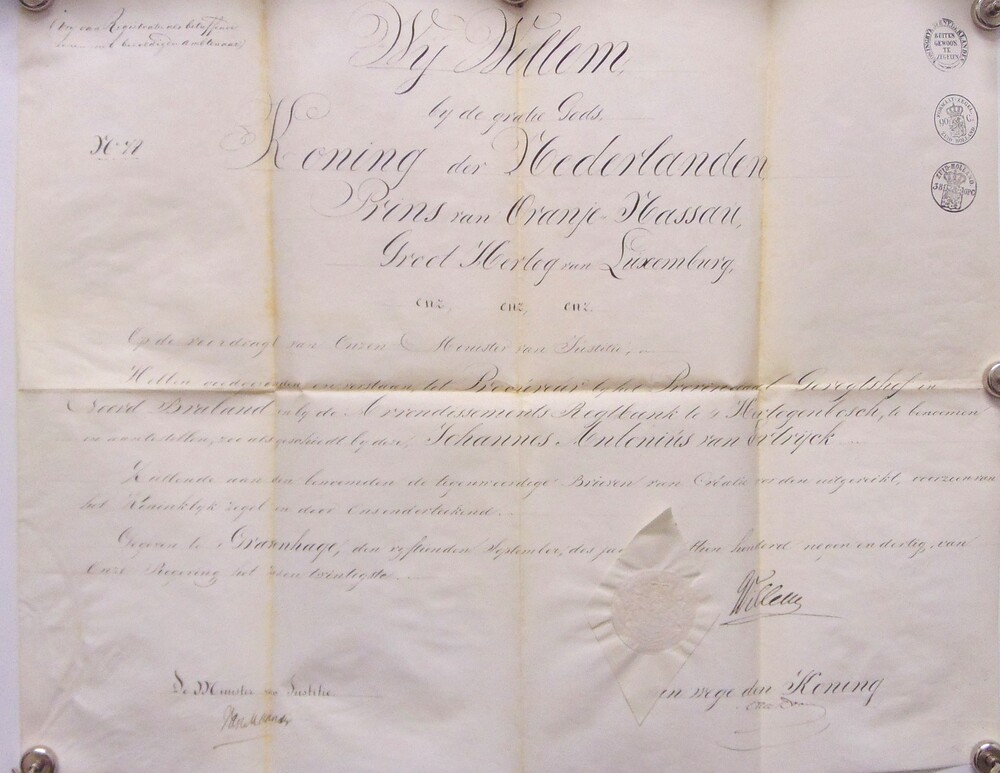 (Vry van Registratie als betreffende
eenen beeedigden ambtenaar)
Wij Willem,
by de gratie Gods,
No
Koning der Nederlanden
Prins van Oranje-Nassau,
Groot Hertog van Luxemburg,
enz, enz, enz.
Op de voordragt van Onzen Minister van Justitie,
Hebben goedgevonden en verstaan, tot Procureur by het Provinciaal Geregtshof in
Noord Braband en by de Arrondissements Regtbank te 's Hertogenbosch, te benoemen
en aantestellen, zoo als geschiedt by deze, Johannes Antonius van Ertryck
Zullende aan den benoemden de tegenwoordige Brieven van Creatie worden uitgereikt, voorzien van
het Koninklyk zegel en door Ons onderteekend.
Gegeven te 's Gravenhage, den vyftienden September, des jaars achttien honderd negen en dertig, van
Onze Regering het zes en twintigste.
Willem
De Minister van Justitie
van wege den Koning
BUITEN
GEWOON
TE
ZEGELEN
ZUID HOLLAND
ZUID-HOLLAND
38